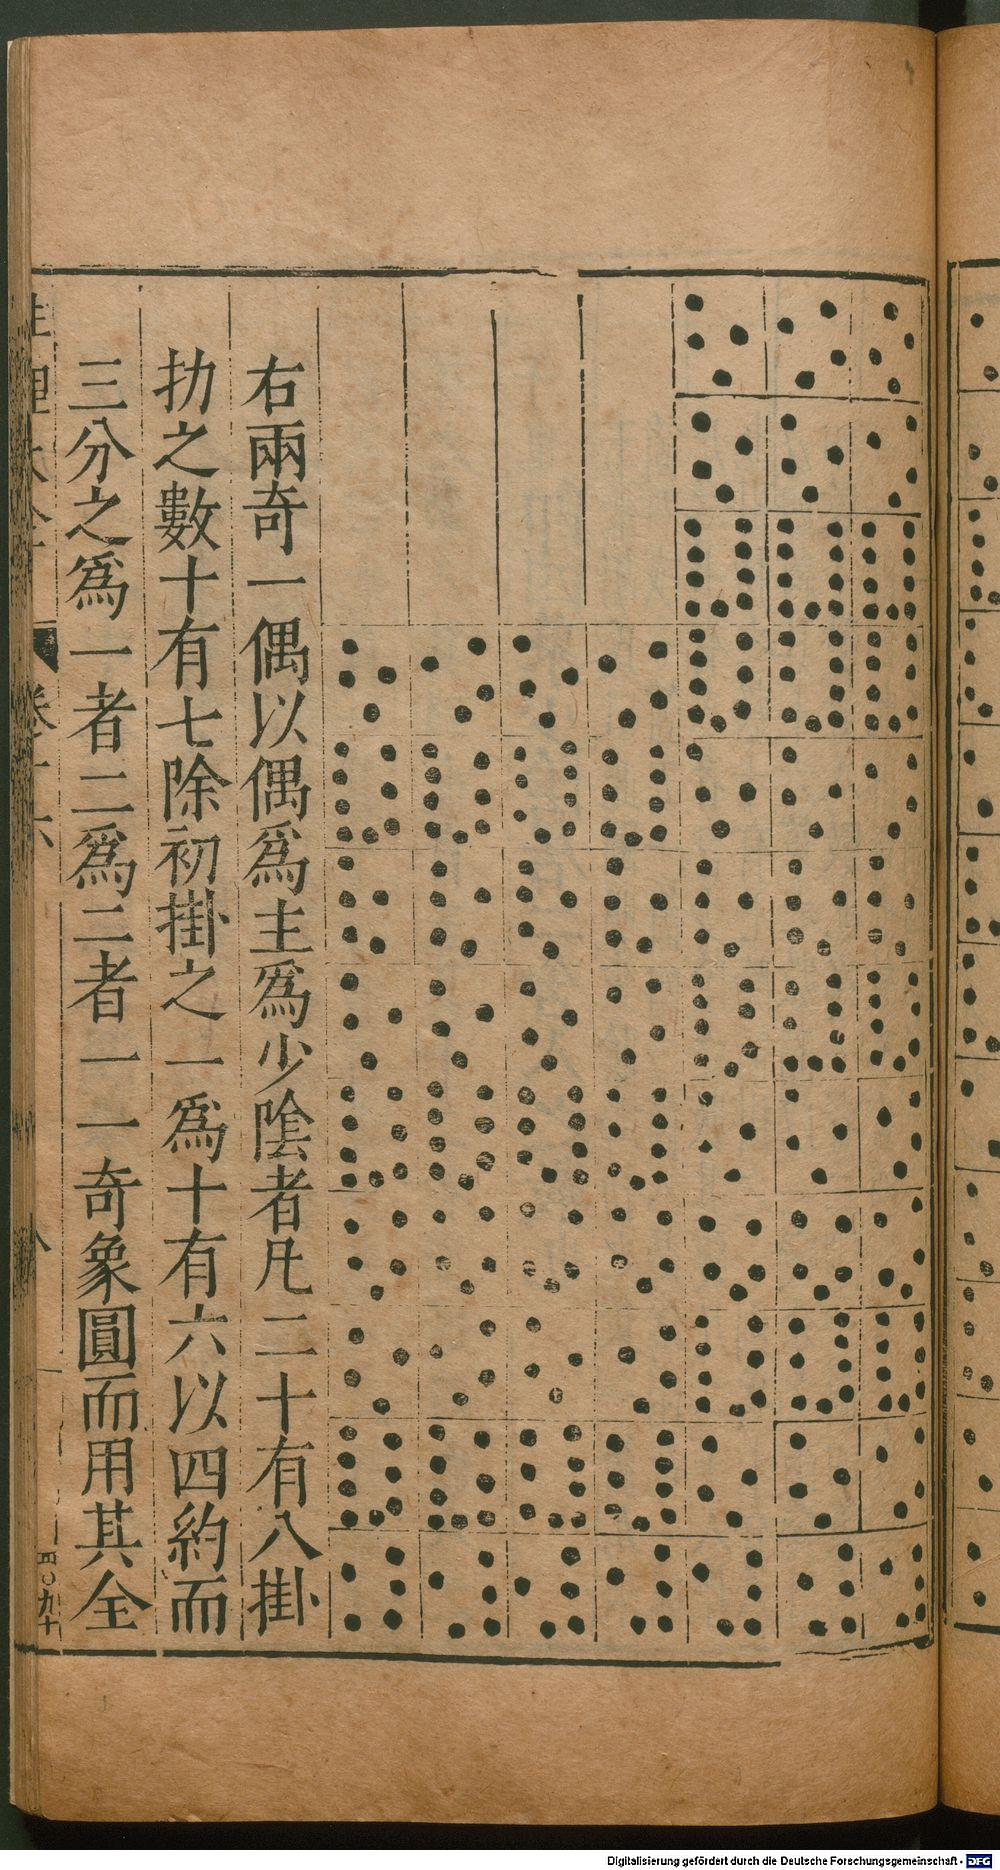 右兩奇一偶以偶爲主爲少隂者凡二十有八掛
扐之數十有七除初掛之一爲十有六以四約而
三分之爲一者二爲二者一一奇象圓而用其全
性理大全 卷十六
八
四〇九十
Digitalisierung gefördert durch die Deutsche Forschungsgemeinschaft - DFG